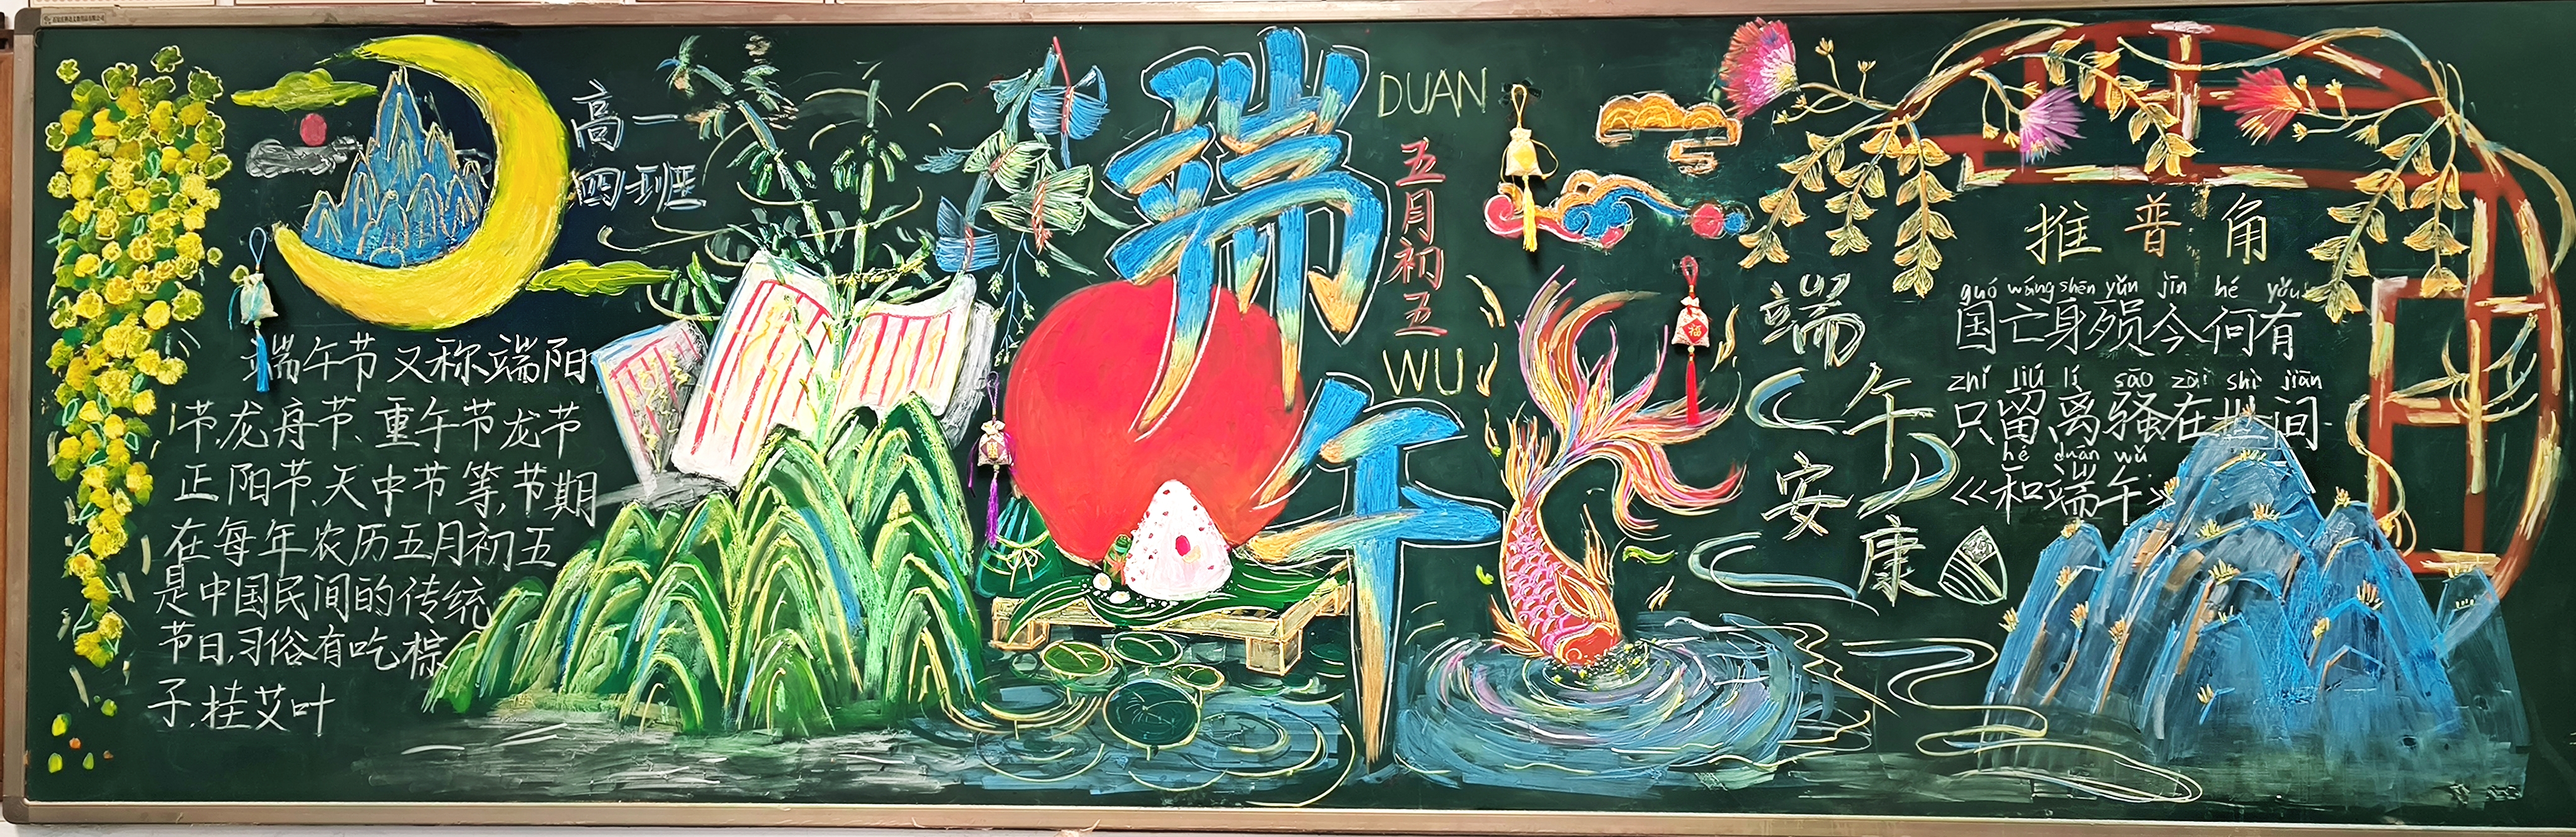 高一
四班
端午节又称端阳
节,龙舟节、重午节龙节
正阳节、天中节等,节期
在每年农历五月初五
是中国民间的传统
节日,习俗有吃棕
子,挂艾叶
端午
DUAN
五月初五
WU
福
端午安康
推普角
guó wáng shēn yǔn jīn hé yǒu
国亡身殒今何有
zhǐ liú lí sāo zài shì jiān
只留离骚在世间
hé duān wǔ
《和端午》